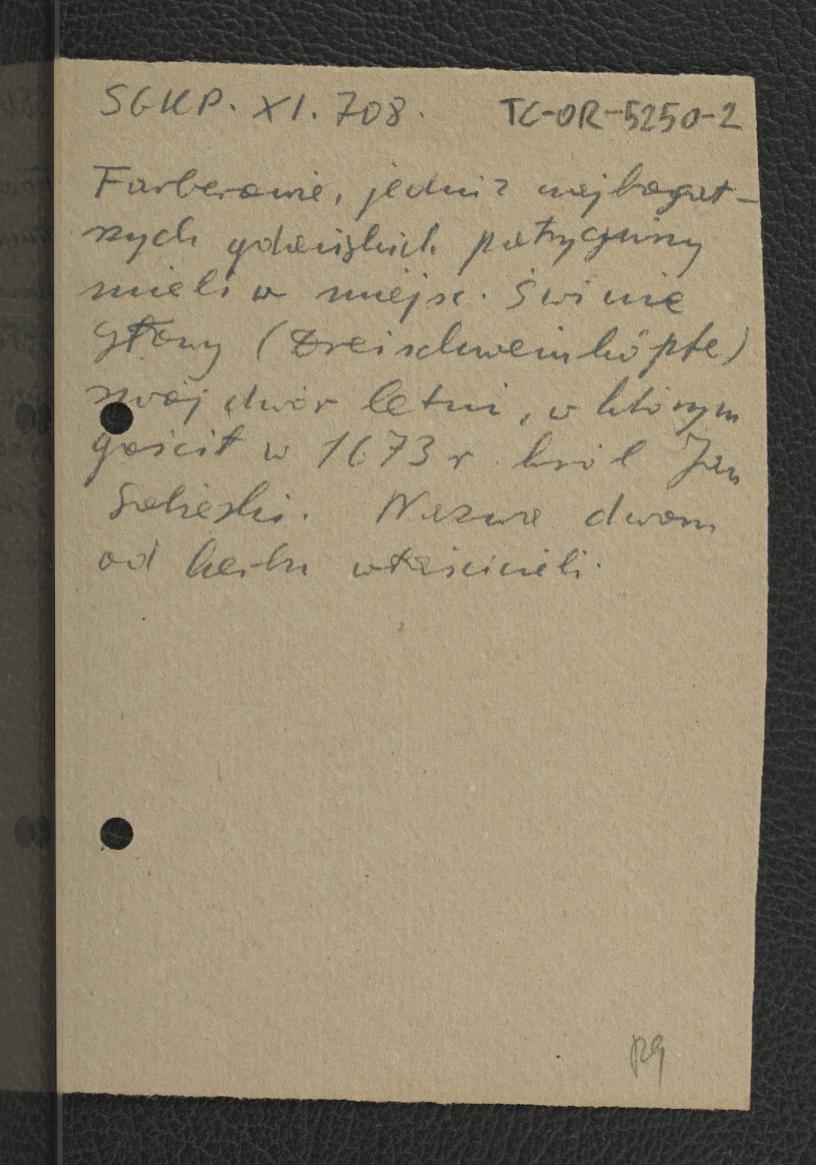 SGKP. XI. 708. TC-OR-5250-2
Farberowie, jedni z najbogat-
szych gdańskich patrycjuszy
mieli w miejsc. Świnie
głowy (Dreischweinköpfe)
swój dwór letni, w którym
gościł w 1673 r. król Jan
Sobieski. Nazwa dworu
od herbu właścicieli.